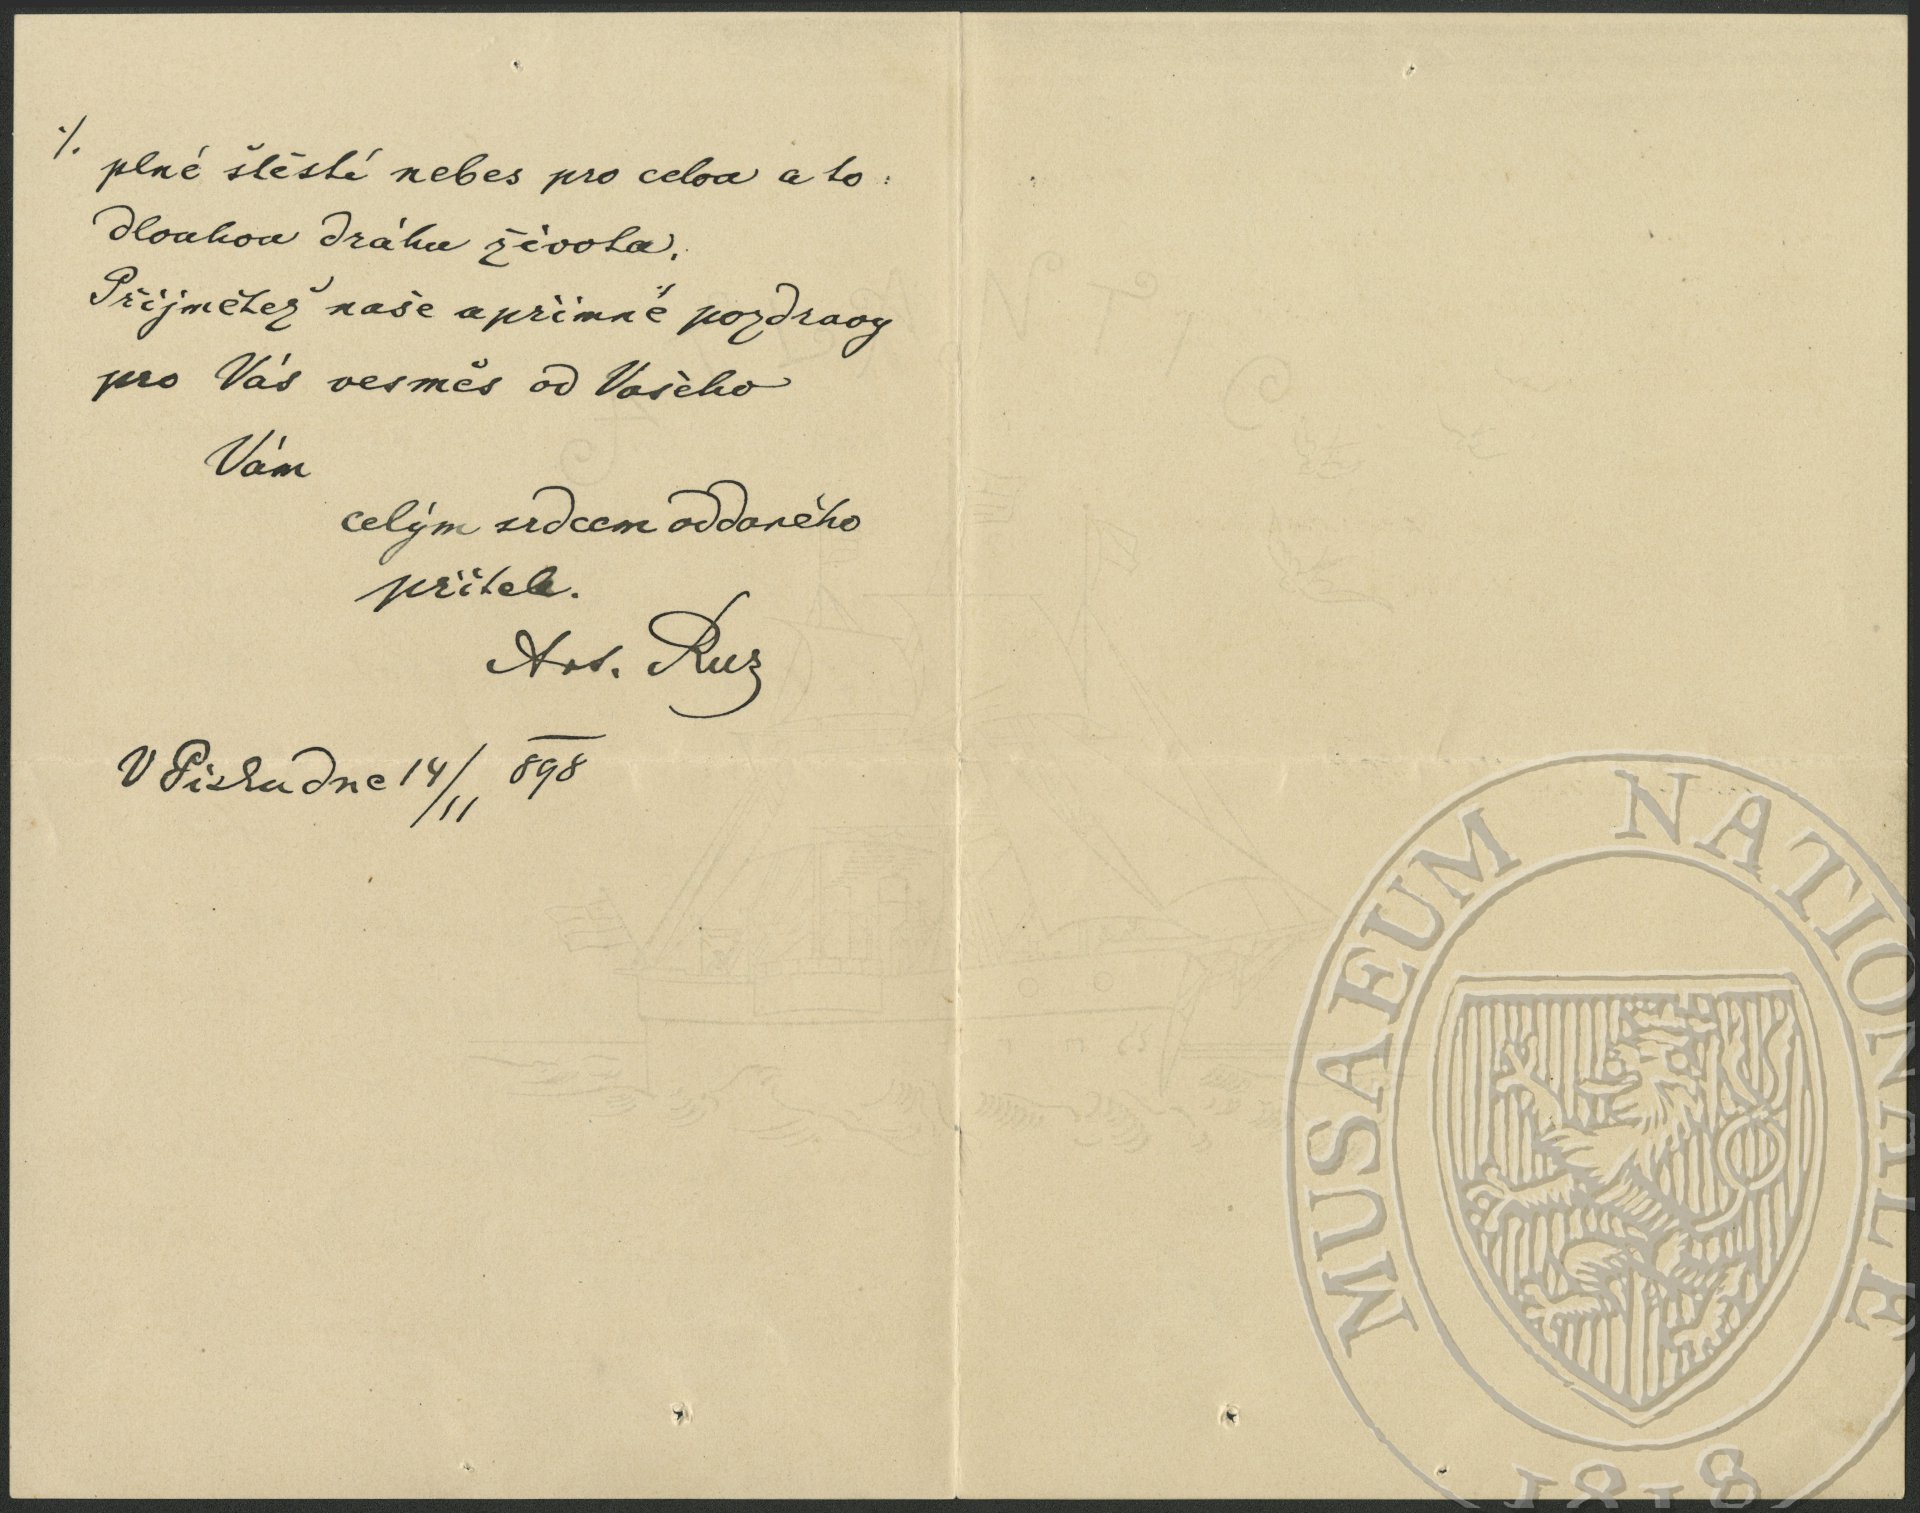 ·/.
plné štěstí nebes pro celou a to
dlouhou dráhu života.
Přijmětež naše upřimné pozdravy
pro Vás vesměs od Vašeho
Vám
celým srdcem oddaného
přítele.
Ant. Ruz
V Písku dne 14/11 898
MUSAEUM NATIONALE
1818